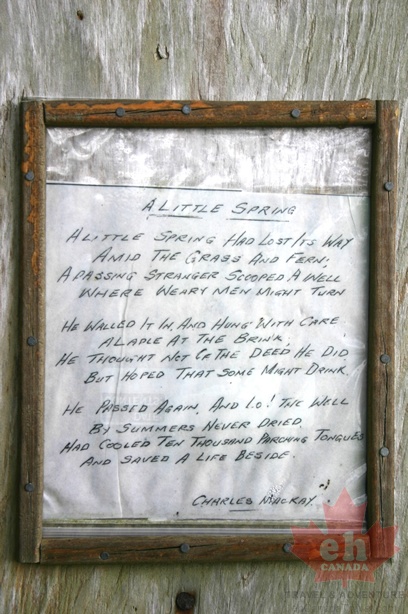 A LITTLE SPRING
A LITTLE SPRING HAD LOST ITS WAY
AMID THE GRASS AND FERN;
A PASSING STRANGER SCOOPED A WELL
WHERE WEARY MEN MIGHT TURN
HE WALLED IT IN, AND HUNG WITH CARE
A LADLE AT THE BRINK,
HE THOUGHT NOT OF THE DEED HE DID
BUT HOPED THAT SOME MIGHT DRINK.
HE PASSED AGAIN, AND LO! THE WELL
BY SUMMERS NEVER DRIED
HAD COOLED TEN THOUSAND PARCHING TONGUES
AND SAVED A LIFE BESIDE.
CHARLES MACKAY.
eh
CANADA
TRAVEL & ADVENTURE